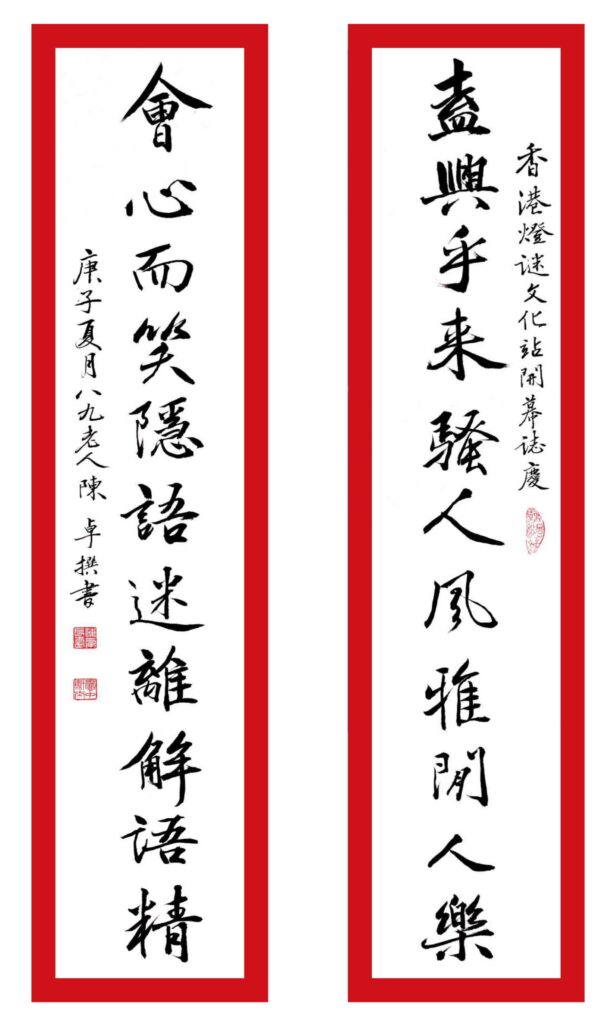 香港燈謎文化站開幕誌慶
盍興乎来騷人風雅閒人樂
會心而笑隱語迷離解語精
庚子夏月八九老人陳卓撰書